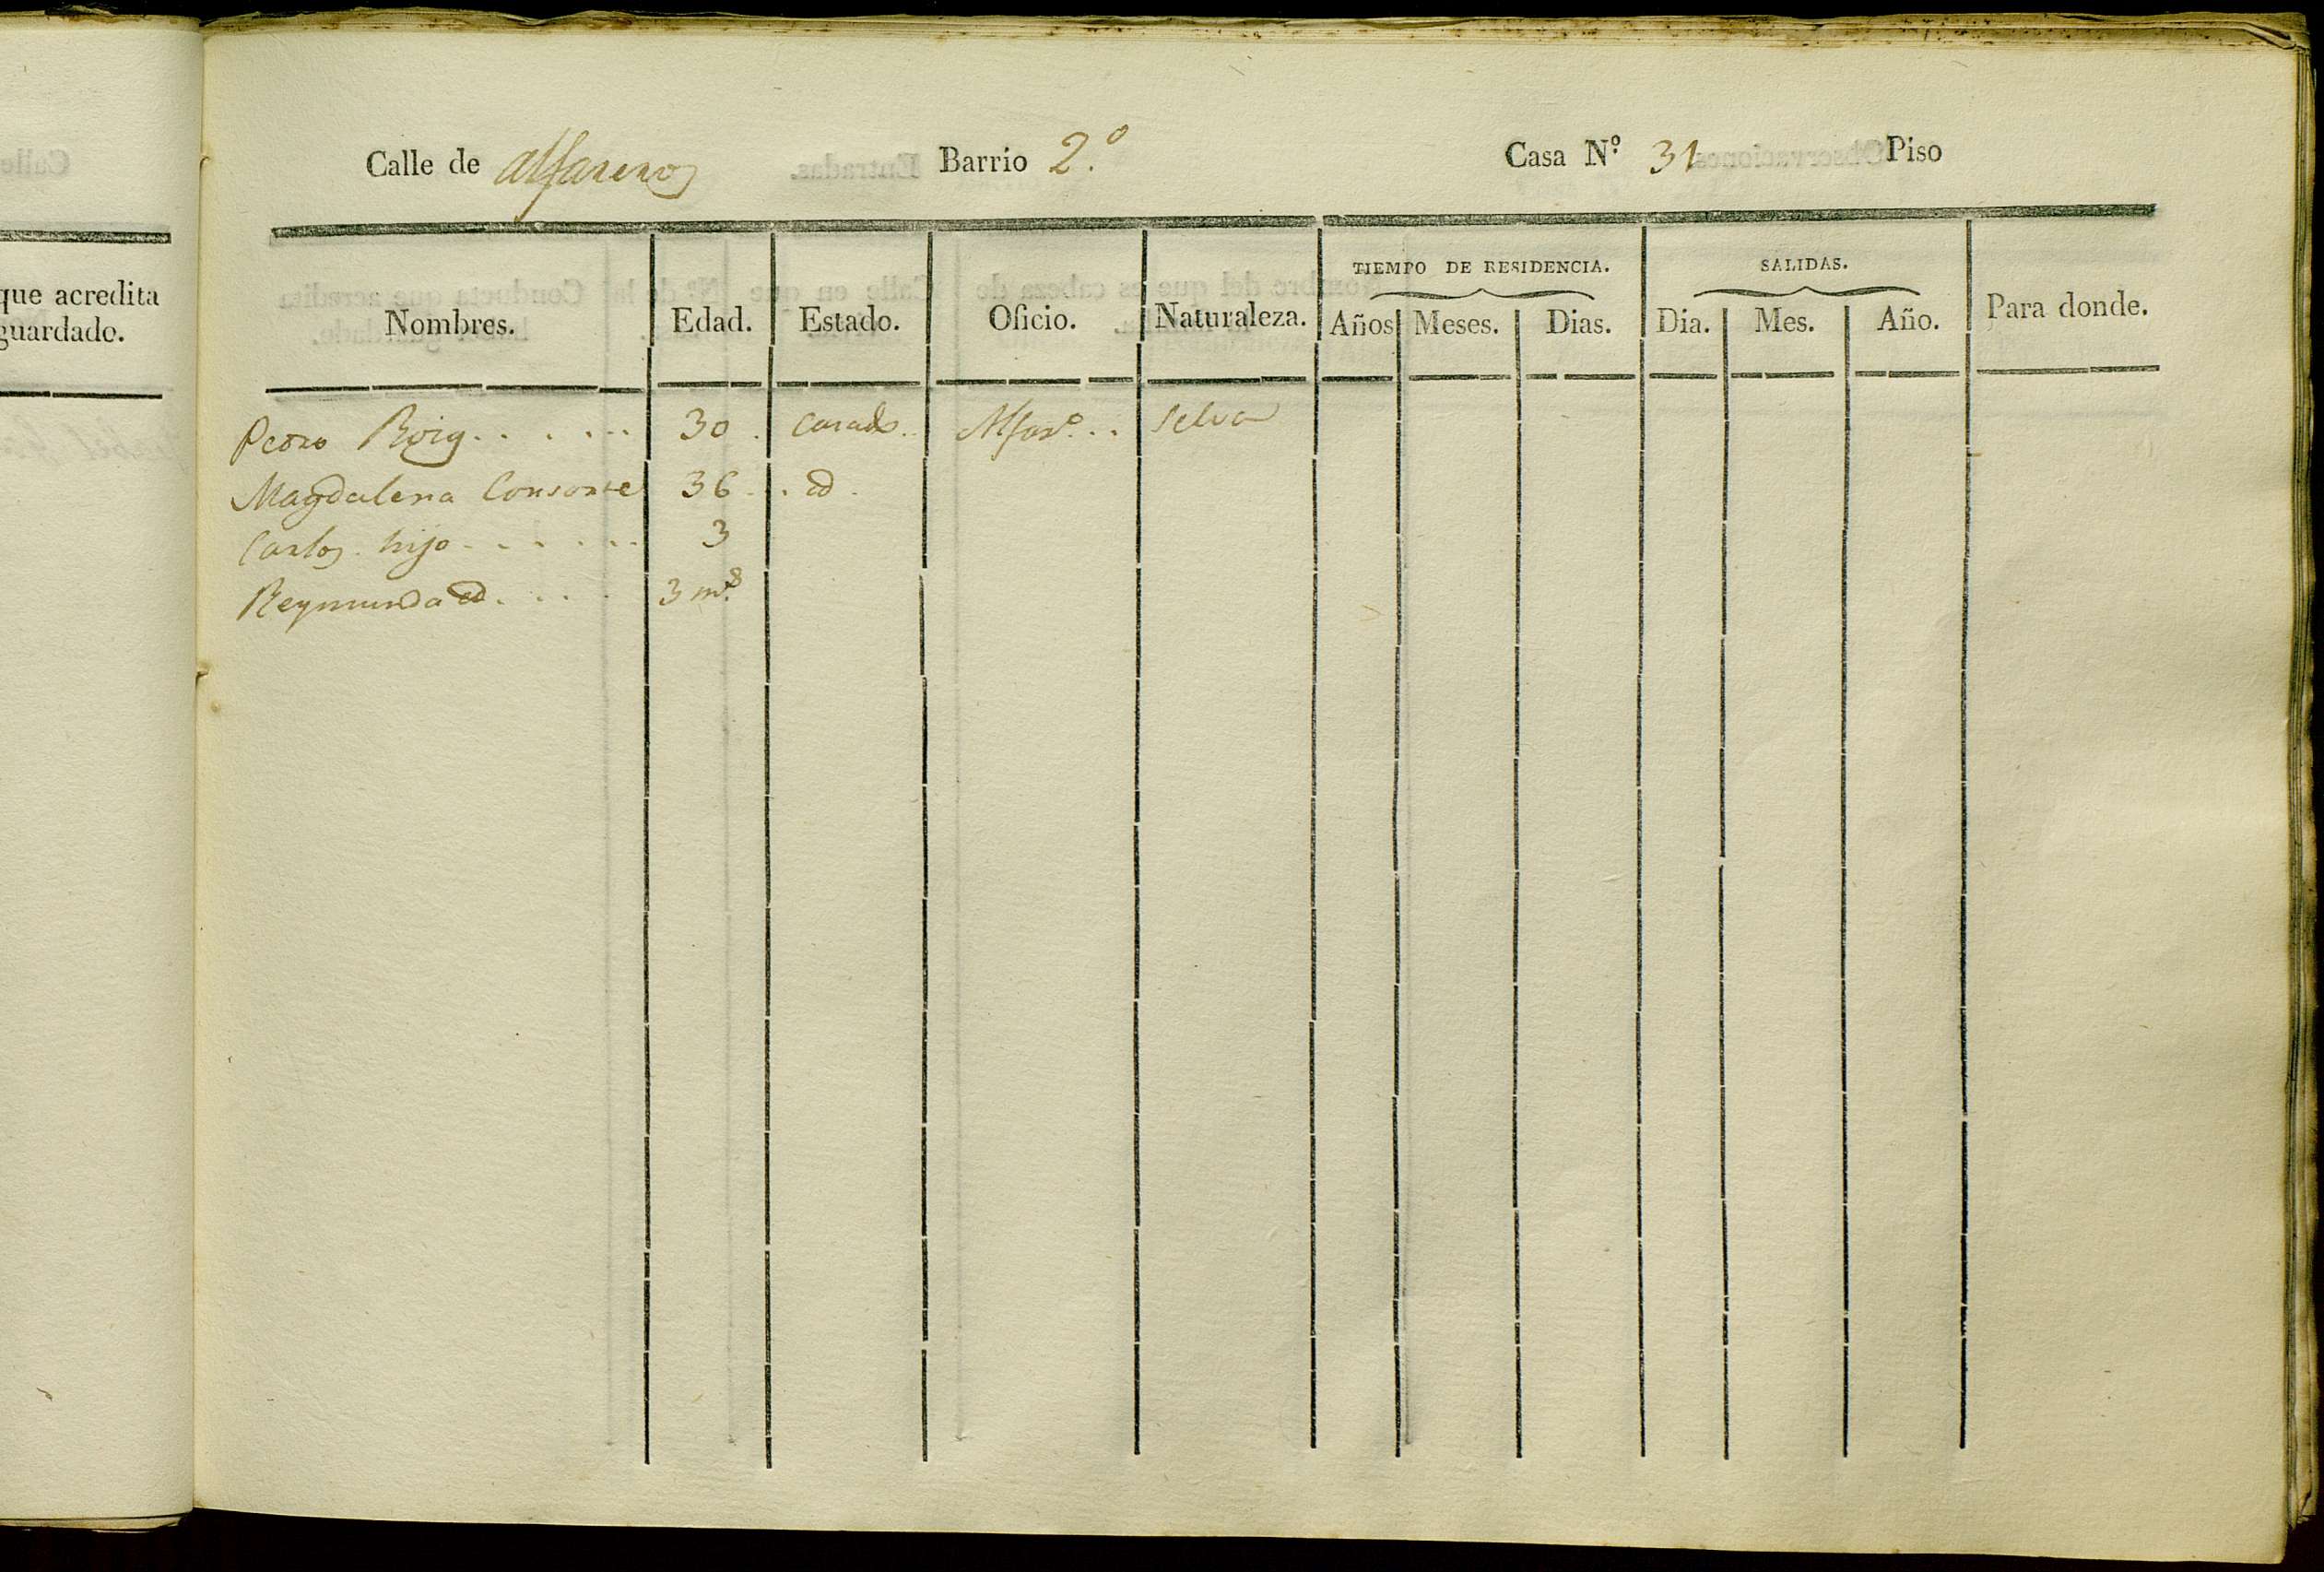 que acredita
guardado.
Calle de alfareros Barrio 2.º Casa N.º 31 Piso
Nombres. Edad. Estado. Oficio. Naturaleza. TIEMPO DE RESIDENCIA. Años Meses. Dias. SALIDAS. Dia. Mes. Año. Para donde.
Pedro Roig . . . . . . 30 . Casado . . Alfar.º . . Selva
Magdalena Consorte 36 . . id .
Carlos . hijo . . . . . . 3
Reymunda id . . . . 3 m.s